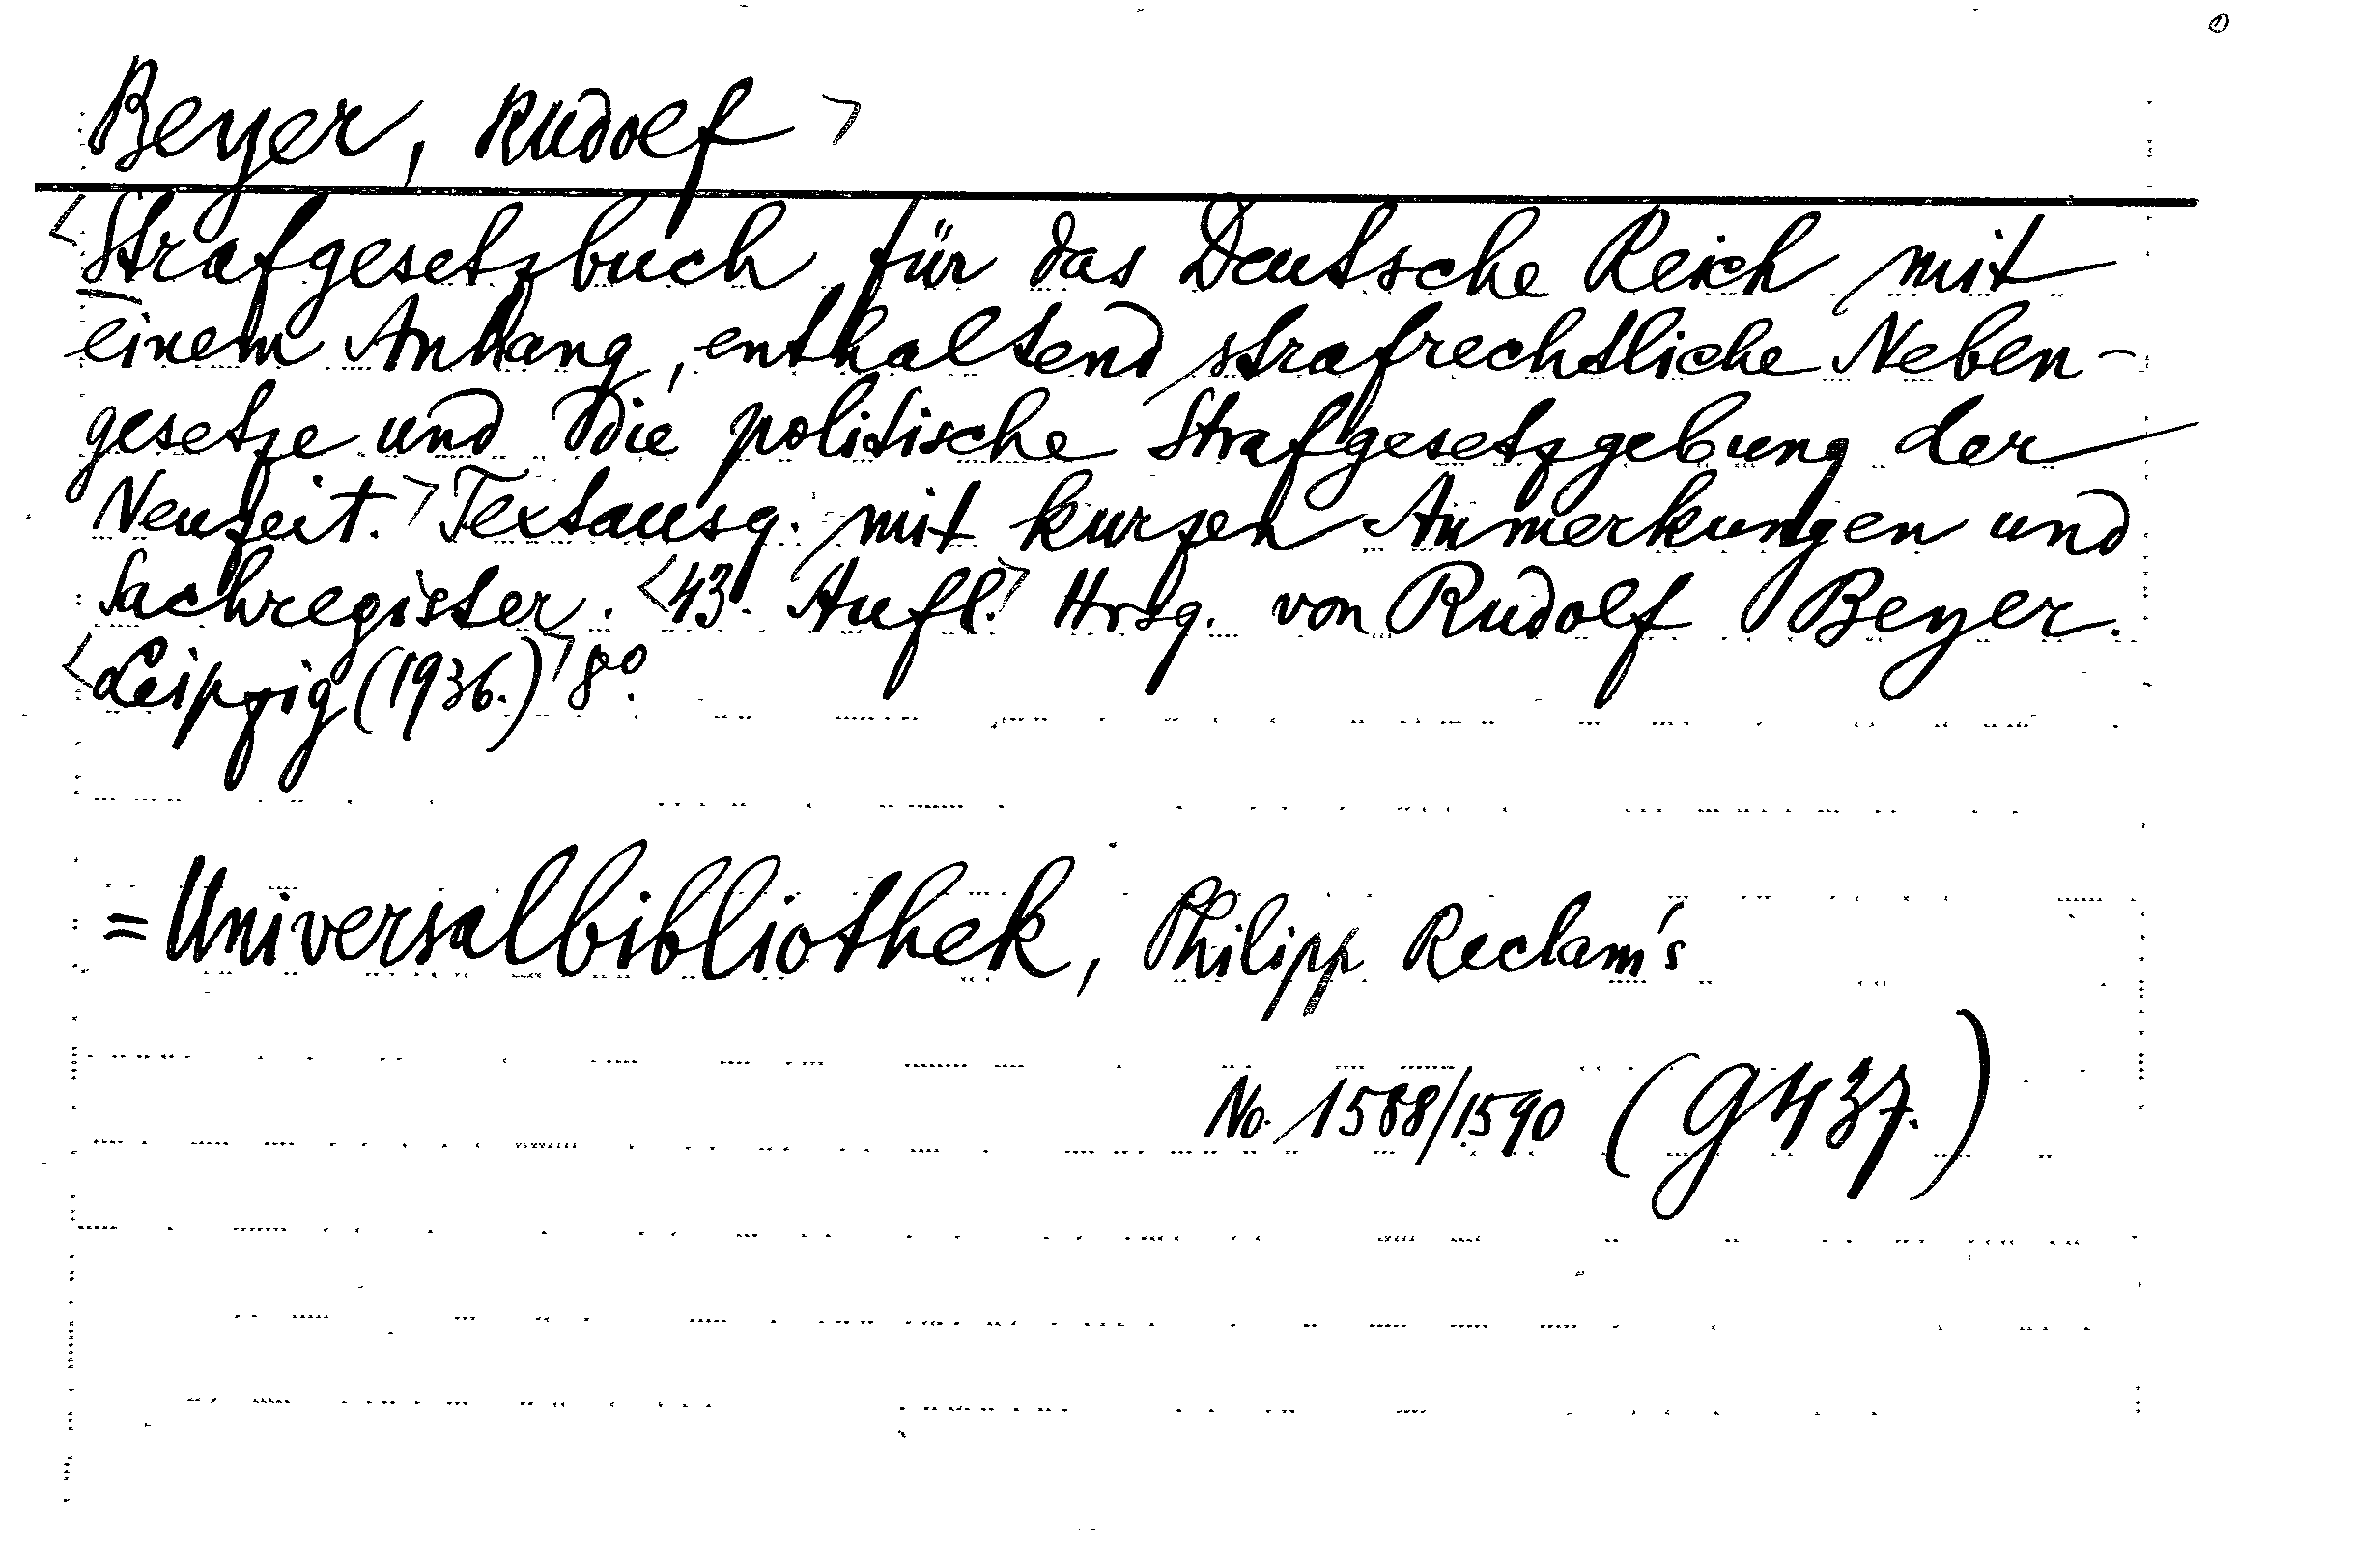 Beyer, Rudolf >
<Strafgesetzbuch für das Deutsche Reich mit
einem Anhang, enthaltend strafrechtliche Neben-
gesetze und die politische Strafgesetzgebung der
Neuzeit.> Textausg. mit kurzen Anmerkungen und
Sachregister. <43. Aufl.> Hrsg. von Rudolf Beyer.
<Leipzig (1936.)> 8°.
= Universalbibliothek, Philipp Reclam's
No. 1588/1590 (G 437.)